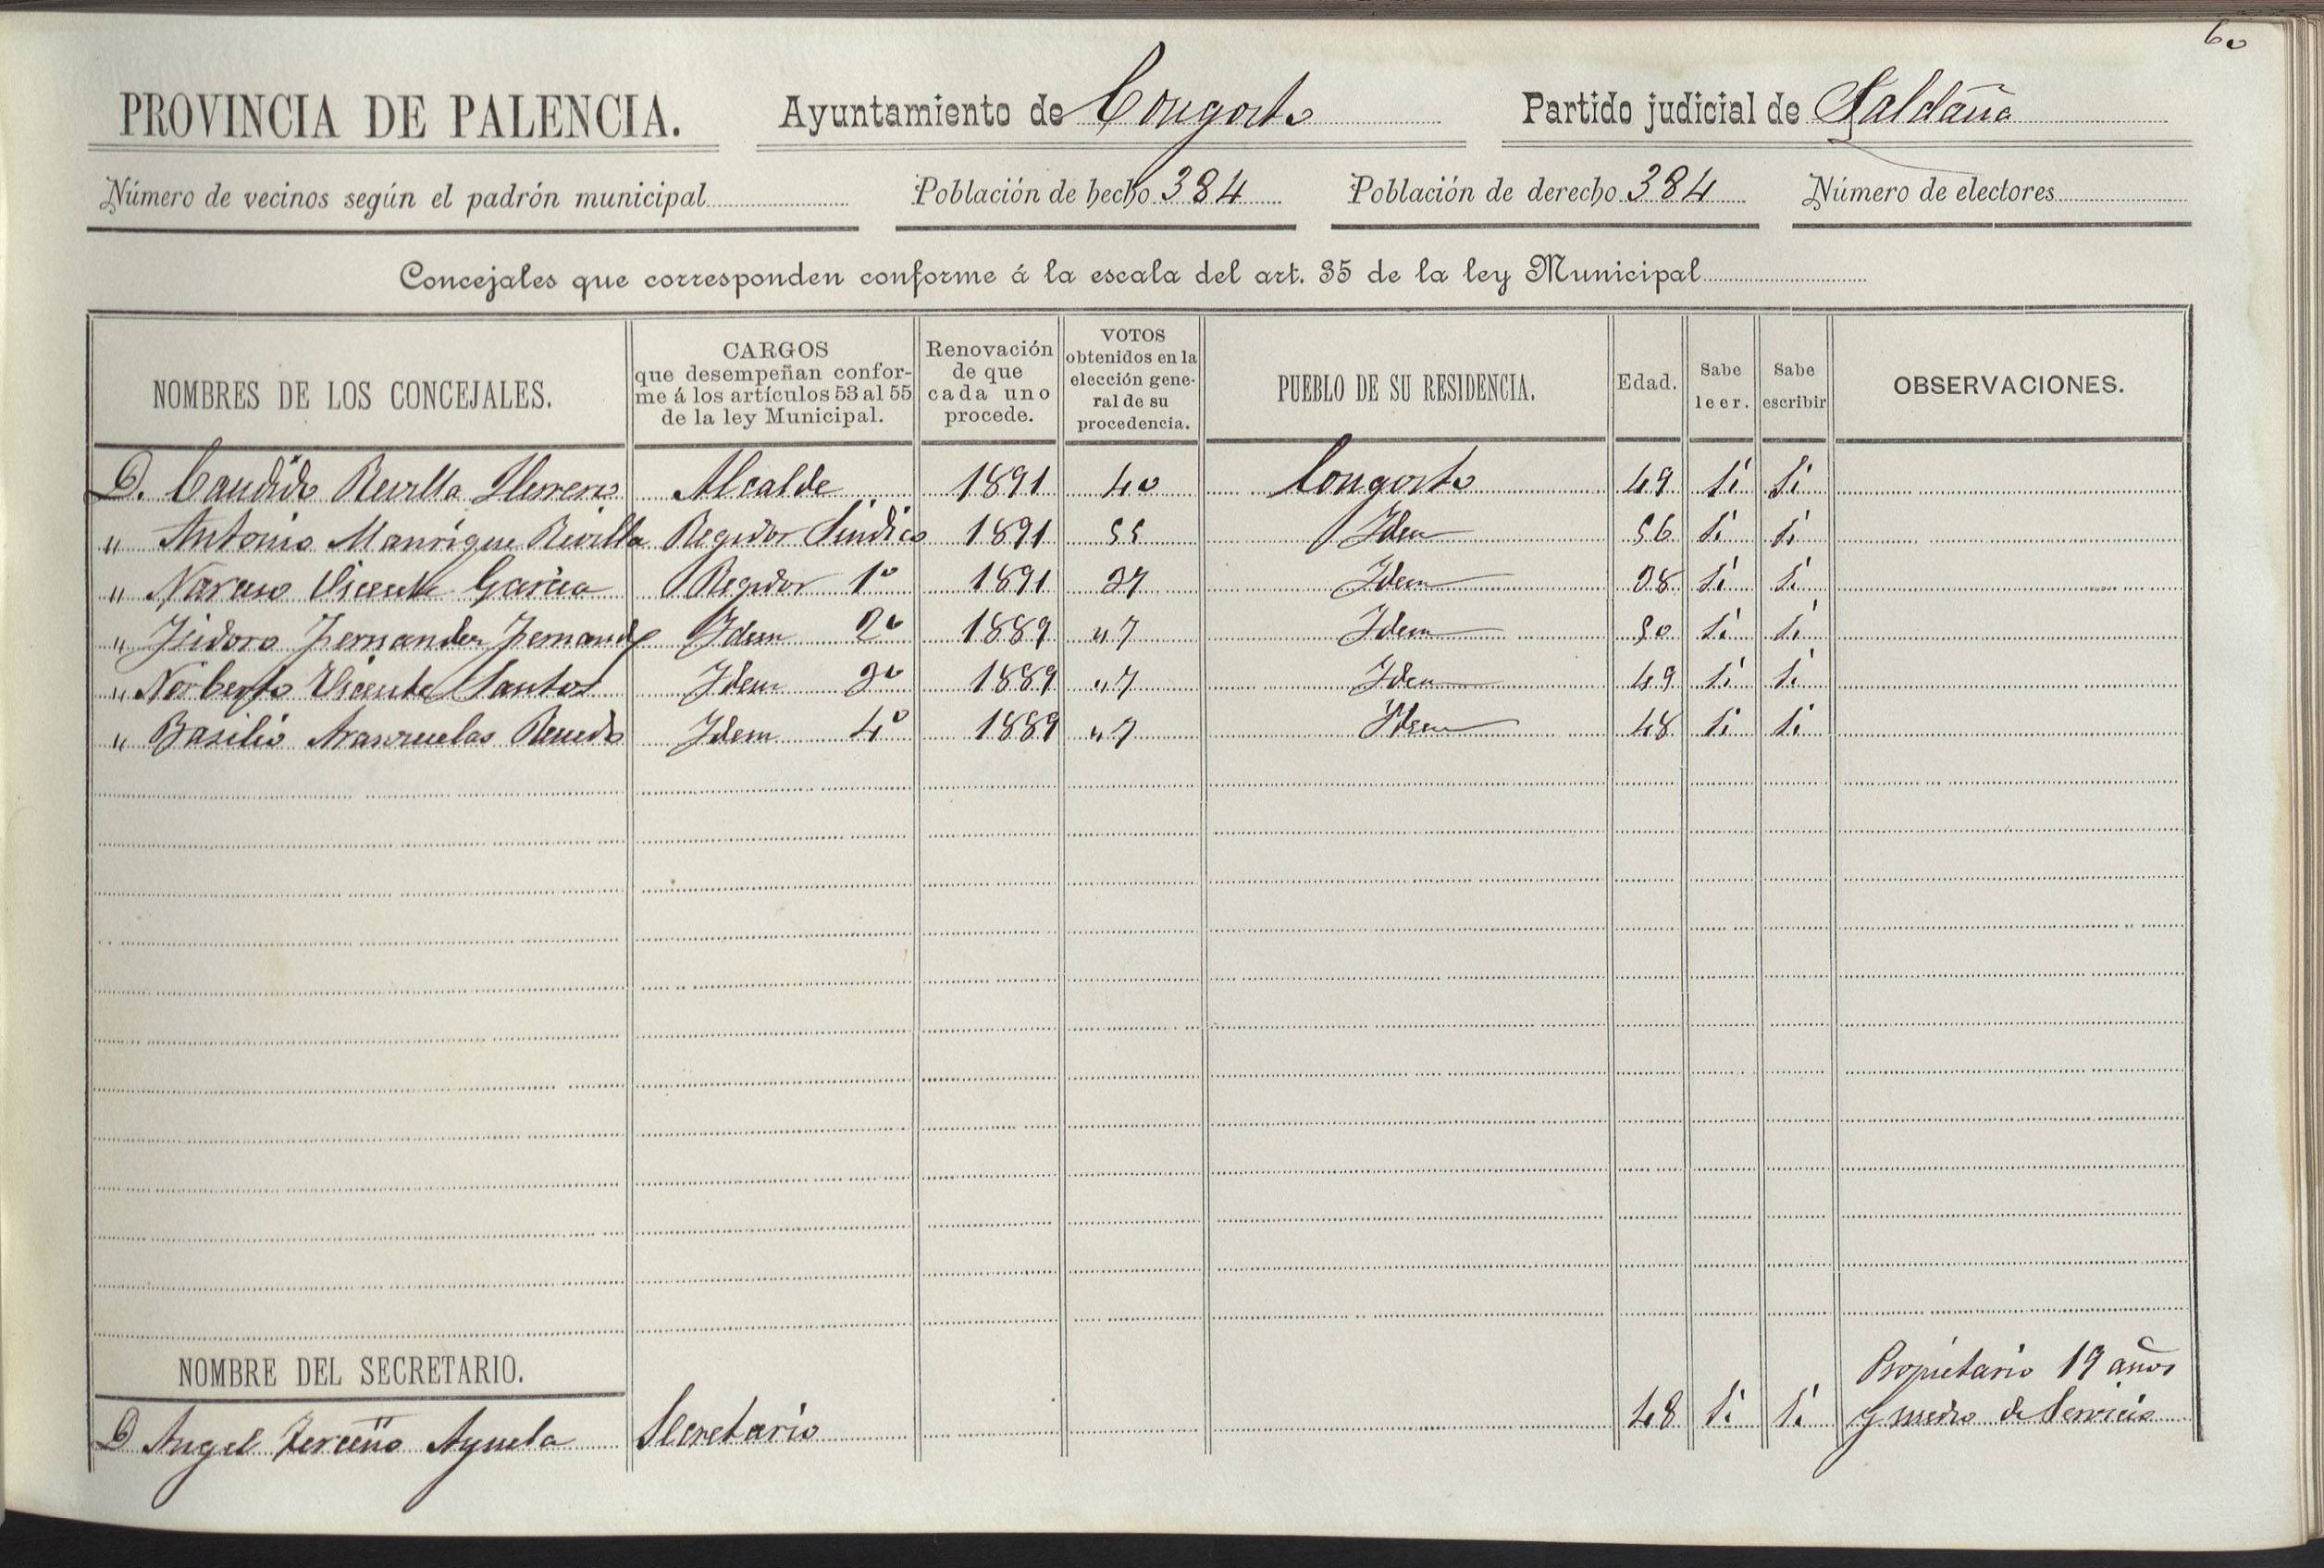 60
PROVINCIA DE PALENCIA. Ayuntamiento de Congosto Partido judicial de Saldaña
Número de vecinos según el padrón municipal Población de hecho 384 Población de derecho 384 Número de electores
Concejales que corresponden conforme á la escala del art. 35 de la ley Municipal
NOMBRES DE LOS CONCEJALES.
CARGOS
que desempeñan confor-
me á los artículos 53 al 55
de la ley Municipal.
Renovación
de que
cada uno
procede.
VOTOS
obtenidos en la
elección gene-
ral de su
procedencia.
PUEBLO DE SU RESIDENCIA.
Edad.
Sabe
leer.
Sabe
escribir
OBSERVACIONES.
D. Candido Revilla Herrero Alcalde 1891 40 Congosto 49 Si Si
" Antonio Manrique Revilla Regidor Sindico 1891 Idem Si Si
" Narciso Vicente Garcia Regidor 1º 1891 Idem Si Si
" Isidoro Fernandez Fernandz Idem 2º 1889 "7 Idem Si Si
" Norberto Vicente Santos Idem 3º 1889 "7 Idem 49 Si Si
" Basilio Renedo Idem 4º 1889 "7 Idem 48 Si Si
NOMBRE DEL SECRETARIO.
D Angel Terceño Ayuela Secretario 48 Si Si Propietario 19 años
y medio de Servicio